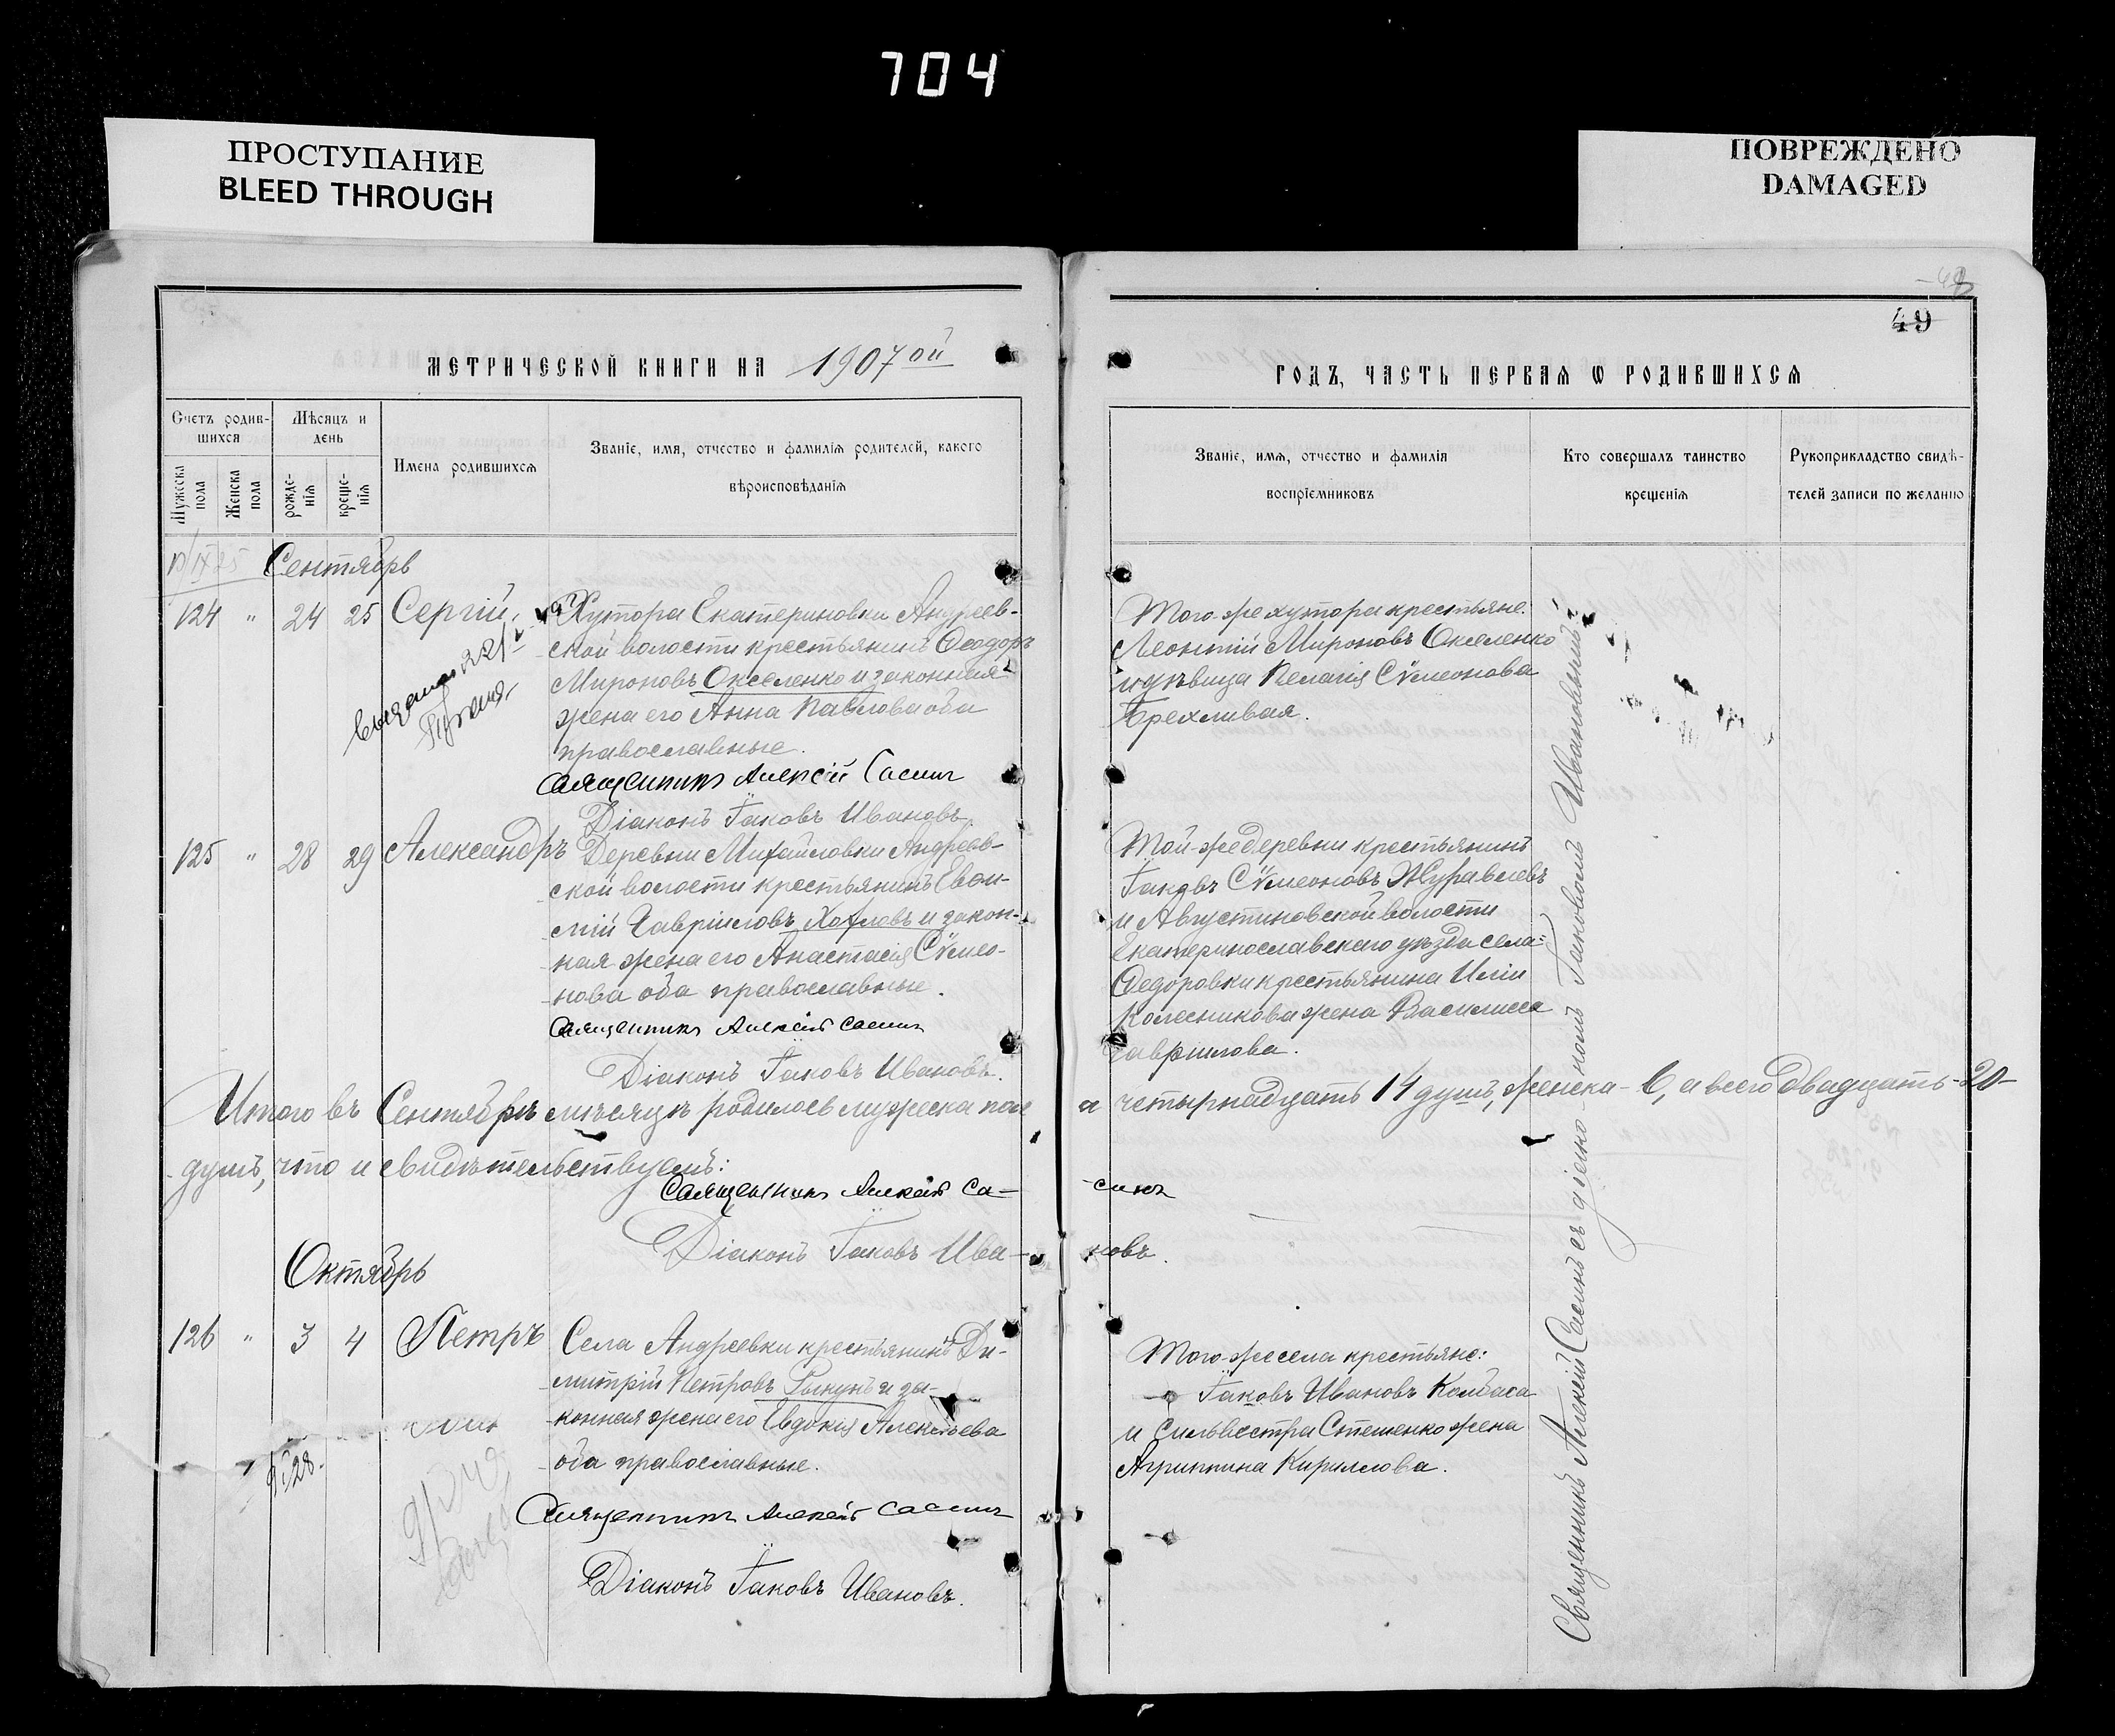 704
ПРОСТУПАНИЕ
BLEED THROUGH
ПОВРЕЖДЕНО
DAMAGED
49
МЕТРИЧЕСКОЙ КНИГИ НА 1907 ой
ГОДЪ, ЧАСТЬ ПЕРВАЯ Ѡ РОДИВШИХСЯ
Счетъ родив-
шихся
Мужеска пола
Женска пола
Мѣсяцъ и
день
рожде-
нія
креще-
нія
Имена родившихся
Званіе, имя, отчество и фамилія родителей, какого
вѣроисповѣданія
Званіе, имя, отчество и фамилія
воспріемниковъ
Кто совершалъ таинство
крещенія
Рукоприкладство свидѣ-
телей записи по желанію
Сентябрь
124 " 24 25 Сергій
Хутора Екатериновки Андреев-
ской волости крестьянинъ Ѳеодоръ
Мироновъ Окселенко и законная
жена его Анна Павлова оба
православные.
Священникъ Алексій Сасинъ
Діаконъ Іаковъ Ивановъ
Того-же хутора крестьяне:
Леонтій Мироновъ Окселенко
и дѣвица Пелагія Сѵмеонова
Брехливая.
125 " 28 29 Александръ
Деревни Михайловки Андреев-
ской волости крестьянинъ Евѳи-
мій Гавріиловъ Хохловъ и закон-
ная жена его Анастасія Сѵмео-
нова оба православные.
Священникъ Алексій Сасинъ
Діаконъ Іаковъ Ивановъ.
Той-же деревни крестьянинъ
Іаковъ Сѵмеоновъ Журавлевъ
и Августиновской волости
Екатеринославскаго уѣзда села
Ѳедоровки крестьянина Иліи
Колесникова жена Василиса
Гавріилова.
Итого въ Сентябрѣ мѣсяцѣ родилось мужеска пола четырнадцать 14 душъ, женска - 6, а всего двадцать - 20 -
душъ, что и свидѣтельствуемъ:
Священникъ Алексій Са- синъ
Діаконъ Іаковъ Ива- новъ.
Октябрь
126 " 3 4 Петръ
Села Андреевки крестьянинъ Ди-
митрій Петровъ и за-
конная жена его Евдокія Алексѣева
оба православные.
Священникъ Алексій Сасинъ
Діаконъ Іаковъ Ивановъ.
Того-же села крестьяне:
Іаковъ Ивановъ Колбаса
и Сильвестра Стешенко жена
Агриппина Кириллова.
Священникъ Алексій Сасинъ съ діако-номъ Іаковомъ Ивановымъ